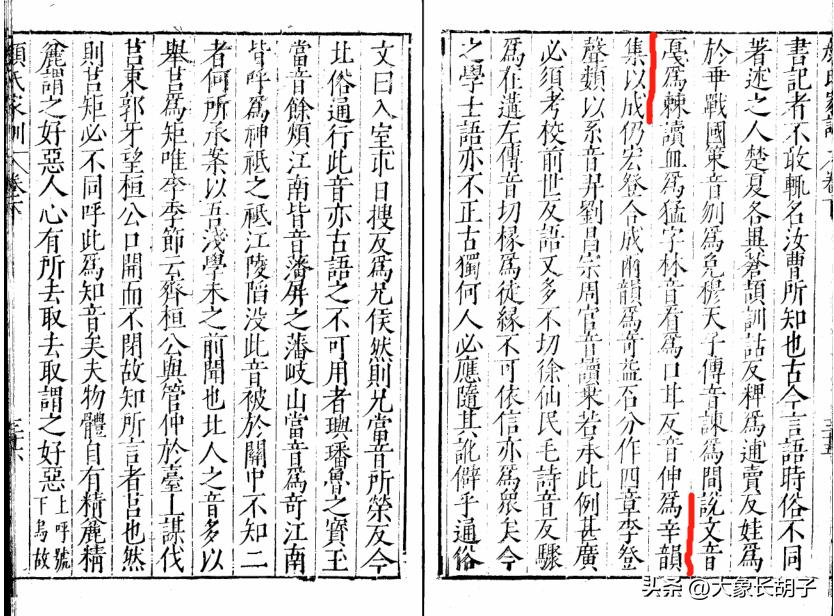 書記者不敢輒名汝曹所知也古今言語時俗不同
著述之人楚夏各異蒼頡訓詁反稗爲逋賣反娃爲
於乖戰國策音刎爲免穆天子傳音諫爲間說文音
戛爲棘讀皿爲猛字林音看爲口甘反音伸爲辛韻
集以成仍宏登合成兩韻爲奇益石分作四章李登
聲類以系音羿劉昌宗周官音讀乘若承此例甚廣
必須考校前世反語又多不切徐仙民毛詩音反驟
爲在遘左傳音切椽爲徒緣不可依信亦爲衆矣今
之學士語亦不正古獨何人必應隨其訛僻乎通俗
文曰入室求曰搜反爲兄侯然則兄當音所榮反今
北俗通行此音亦古語之不可用者璵璠魯之寶玉
當音餘煩江南皆音藩屏之藩岐山當音爲奇江南
皆呼爲神祇之祇江陵陷没此音被於關中不知二
者何所承案以吾淺學未之前聞也北人之音多以
舉莒爲矩唯李季節云齊桓公與管仲於臺上謀伐
莒東郭牙望桓公口開而不閉故知所言者莒也然
則莒矩必不同呼此爲知音矣夫物體自有精麤精
麤謂之好惡人心有所去取去取謂之好惡上呼號下烏故
顏氏家訓
頭条 @大象长胡子